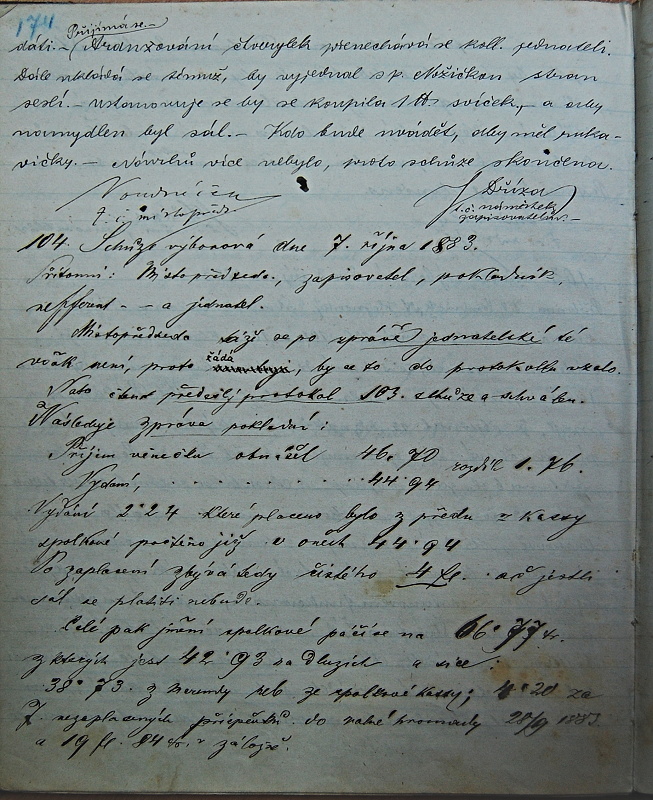 174
Přijímá se.
dáti. - Aranžování čtverylek přenechává se koll. jednateli.
Dále ukládá se témuž, by vyjednal s p. Nožičkou stran
seslí. - ustanovuje se by se koupila 1 tt svíček, a aby
namydlen byl sál. - Kdo bude uvádět, aby měl ruka-
vičky. - Návrhů více nebylo, proto schůze skončena.
Dříza
t. č. místopřed. t. č. náměstek
zapisovatelův. -
104. Schůze výborová dne 7. října 1883.
Přítomni: Místopředseda, zapisovatel, pokladník,
- - a jednatel.
Místopředseda táže se po zprávě jednatelské té
však není, proto žádá by se to do protokolu vzalo.
Nato čten předešlý protokol 103. schůze a schválen.
Následuje zpráva pokladní:
Příjem věnečku obnášel 46.70 rozdíl 1.76.
Vydání, . . . . . . . . 44.94
Vydání 2.24 které placeno bylo z předu z kassy
spolkové počteno již v oněch 44.94
Po zaplacení zbývá tedy čistého 4 fl. ač jestli
sál se platiti nebude.
Celé pak jmění spolkové páčí se na 66.77 kr.
z kterých jest 42.93 na dluzích a sice:
38.73. z merendy neb ze spolkové kassy; 4.20 za
7. nezaplacených příspěvků do valné hromady 28/9 1883.
a 19 fl. 84 kr. v záložně.